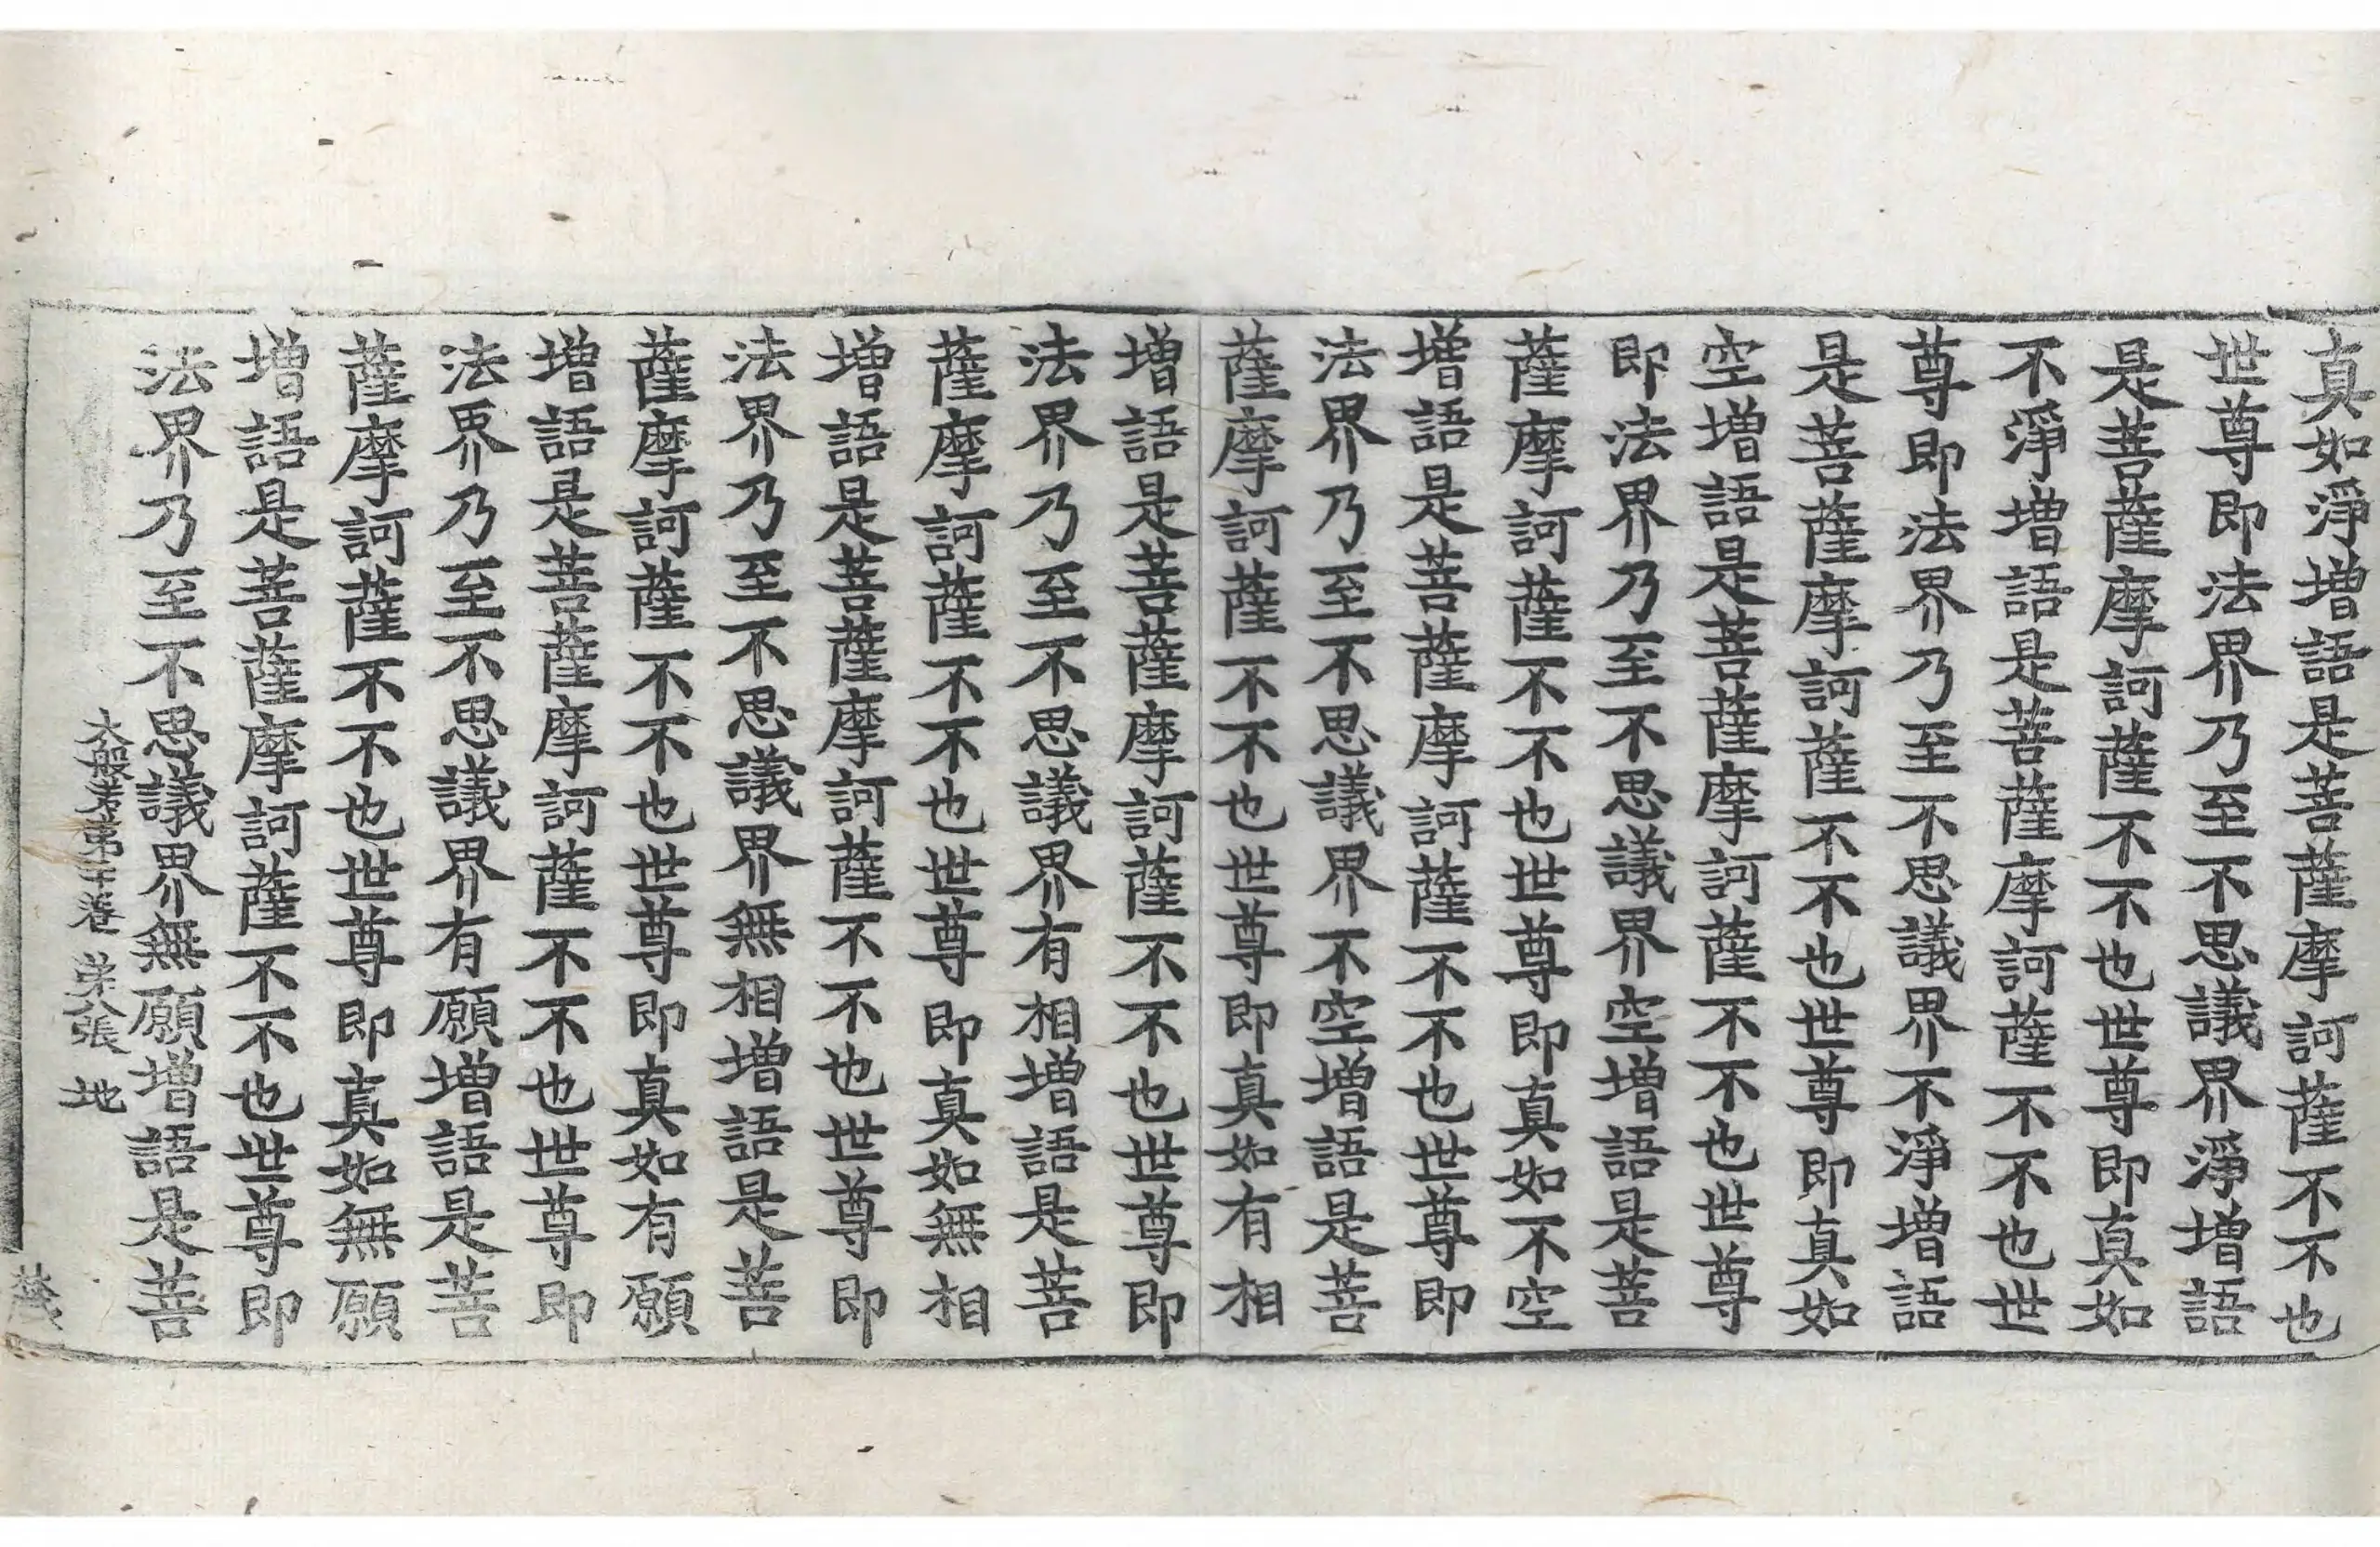 真如淨增語是菩薩摩訶薩不不也
世尊即法界乃至不思議界淨增語
是菩薩摩訶薩不不也世尊即真如
不淨增語是菩薩摩訶薩不不也世
尊即法界乃至不思議界不淨增語
是菩薩摩訶薩不不也世尊即真如
空增語是菩薩摩訶薩不不也世尊
即法界乃至不思議界空增語是菩
薩摩訶薩不不也世尊即真如不空
增語是菩薩摩訶薩不不也世尊即
法界乃至不思議界不空增語是菩
薩摩訶薩不不也世尊即真如有相
增語是菩薩摩訶薩不不也世尊即
法界乃至不思議界有相增語是菩
薩摩訶薩不不也世尊即真如無相
增語是菩薩摩訶薩不不也世尊即
法界乃至不思議界無相增語是菩
薩摩訶薩不不也世尊即真如有願
增語是菩薩摩訶薩不不也世尊即
法界乃至不思議界有願增語是菩
薩摩訶薩不不也世尊即真如無願
增語是菩薩摩訶薩不不也世尊即
法界乃至不思議界無願增語是菩
大般若第卷 第八張 地